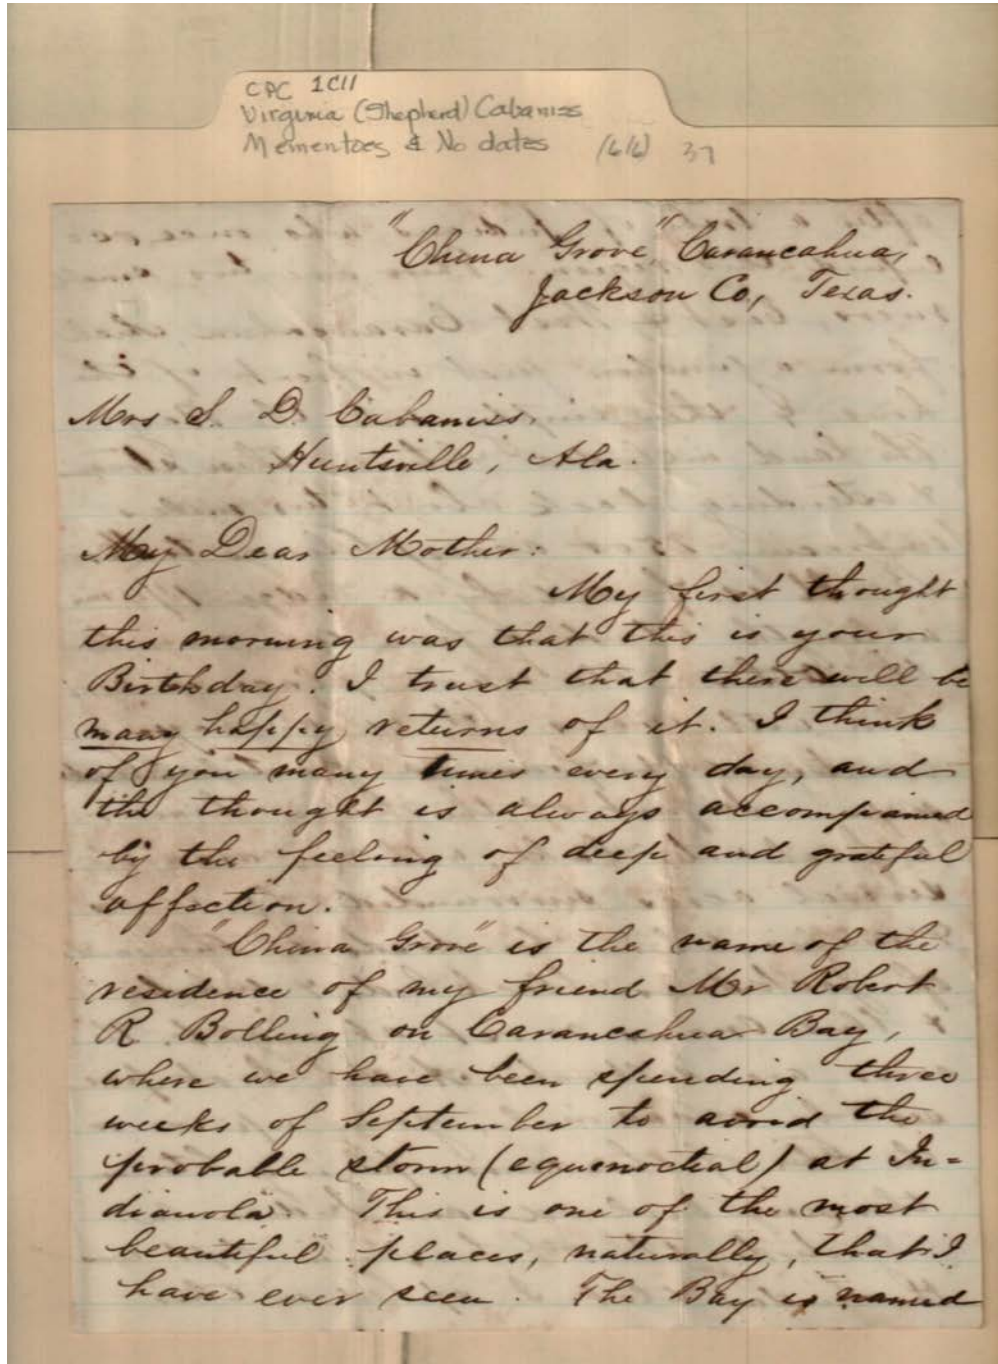 CPC 1C11
Virginia (Shepherd) Cabaniss
Mementoes & No dates (616) 37
"China Grove" Carancahua,
Jackson Co, Texas.
Mrs. S. D. Cabaniss.
Huntsville, Ala.
My Dear Mother:
My first thought
this morning was that this is your
Birthday. I trust that there will be
many happy returns of it. I think
of you many times every day, and
the thought is always accompanied
by the feeling of deep and grateful
affection.
"China Grove" is the name of the
residence of my friend Mr Robert
R Bolling on Carancahua Bay,
where we have been spending three
weeks of September to avoid the
probable storm (equinoctial) at In=
dianola. This is one of the most
beautiful places, naturally, that I
have ever seen. The Bay is named